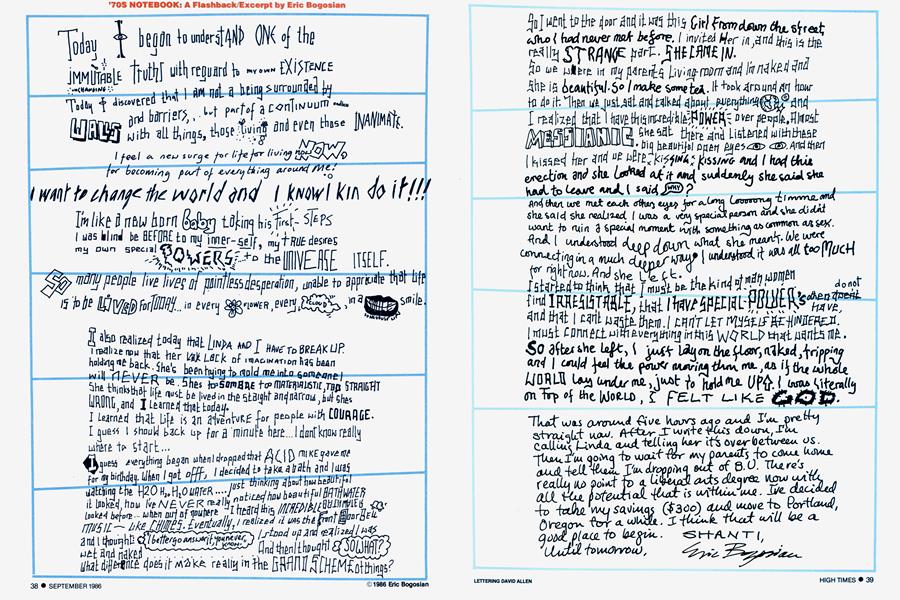 '70S NOTEBOOK: A Flashback/Excerpt by Eric Bogosian
Today I began to understAND ONE of the
IMMUTABLE Truths with reguard to my own EXISTENCE
UNCHANGING
Today I discovered that I am not a being surrounded by
WALLS and barriers,.. but part of a continuum
with all things, those living and even those INANIMATE.
I feel a new surge for life for living NOW,
for becoming part of everything around me!
I want to change the world and I know I kin do it!!!
I'm like a new born Baby taking his first- STEPS
I was blind be BEFORE to my inner-self, my tRUE desires
my own special POWERS to the UNIVERSE ITSELF.
So many people live lives of pointless desperation, unable to appreciate that life
is to be LIVED forTODAY... in every flower, every cloud, in a smile.
I also realized today that LINDA AND I HAVE TO BREAK UP.
I realize now that her LACK of imagination has been
holding me back. She's been tying to mold me into someone I
will NEVER be. Shes to SOMBRE to MATERIALISTIC, TOO STRAIGHT
She thinks that life must be lived in the staight and narrow, but shes
WRONG, and I learned that today.
I learned that Life is an adventure for people with COURAGE.
I guess I should back up for a minute here... I dont know really
where to start...
I guess everything began when I dropped that ACID MIKE gave me
for my birthday. When I got offf, I decided to take a bath and I was
just thinking about how beautiful
watching the H2O H2O WATER.....
it looked, how I've NEVER really noticed how beautiful BATHWATER
looked before... when out of nowhere I heard this INCREDIBLE
MUSIC - like CHIMES. Eventually, I realized it was the front Door BELL
and I thought I better go answer it, you never know. I stood up and realized I was
wet and naked And then I thought SO WHAT?
what difference does it MAKE really in the GRAND SCHEME of things?
38 ● SEPTEMBER 1986
©1986 Eric Bogosian
So I went to the door and it was this Girl from down the street,
who I had never met before. I invited Her in, and this is the
really STRANGE part. SHE CAME IN.
So we where in my parents Living room and I'm naked and
she is beautiful. So I make some tea. It took around an hour
to do it. Then we just sat and talked about everything and
I realized that I have this incredible POWER over people, Almost
MESSIANIC. She sat there and Listened with these
big beautiful open eyes. And then
I kissed her and we were KISSING & kissing and I had this
erection and she Looked at it and suddenly she said she
had to leave and I said WHY?
And then we met each others eyes for a long Looooong timme and
she said she realized I was a very special person and she didn't
want to ruin a special moment with something as common as sex.
And I understood deep down what she meant. We were
connecting in a much deeper way. I understood it was all too MUCH
for right now. And she Left.
I started to think that I must be the kind of man women
find IRRESISTABLE, that I have special POWER's others do not HAVE,
and that I cant waste them. I CAN'T LET MYSELF BE HINDERED.
I must connect with everything in this WORLD that wants me.
So after she left, I just lay on the floor, naked, tripping
and I could feel the power moving thru me, as if the whole
WORLD lay under me, just to hold me UP. I was literally
on top of the WORLD, I FELT LIKE GOD.
That was around five hours ago and I'm pretty
straight now. After I write this down, I'm
calling Linda and telling her it's over between us.
Then I'm going to wait for my parents to come home
and tell them I'm dropping out of B.U. There's
really no point to a liberal arts degree now with
all the potential that is within me. I've decided
to take my savings ($300) and move to Portland,
Oregon for a while. I think that will be a
good place to begin. SHANTI,
Until tomorrow, Eric Bogosian
LETTERING DAVID ALLEN
HIGH TIMES ● 39